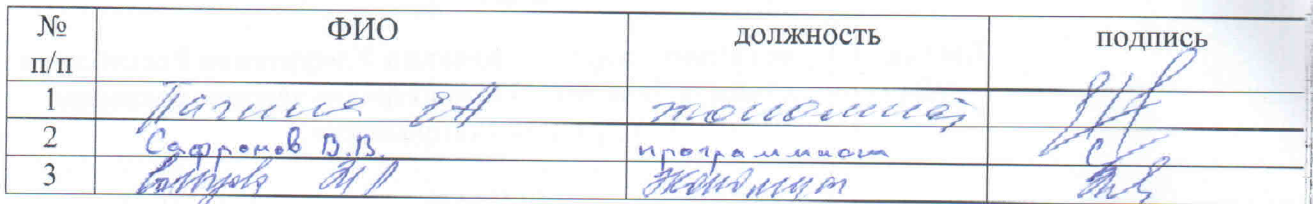 № п/п ФИО должность подпись
1 экономист
2 Сафронов В.В. программист
3 экономист